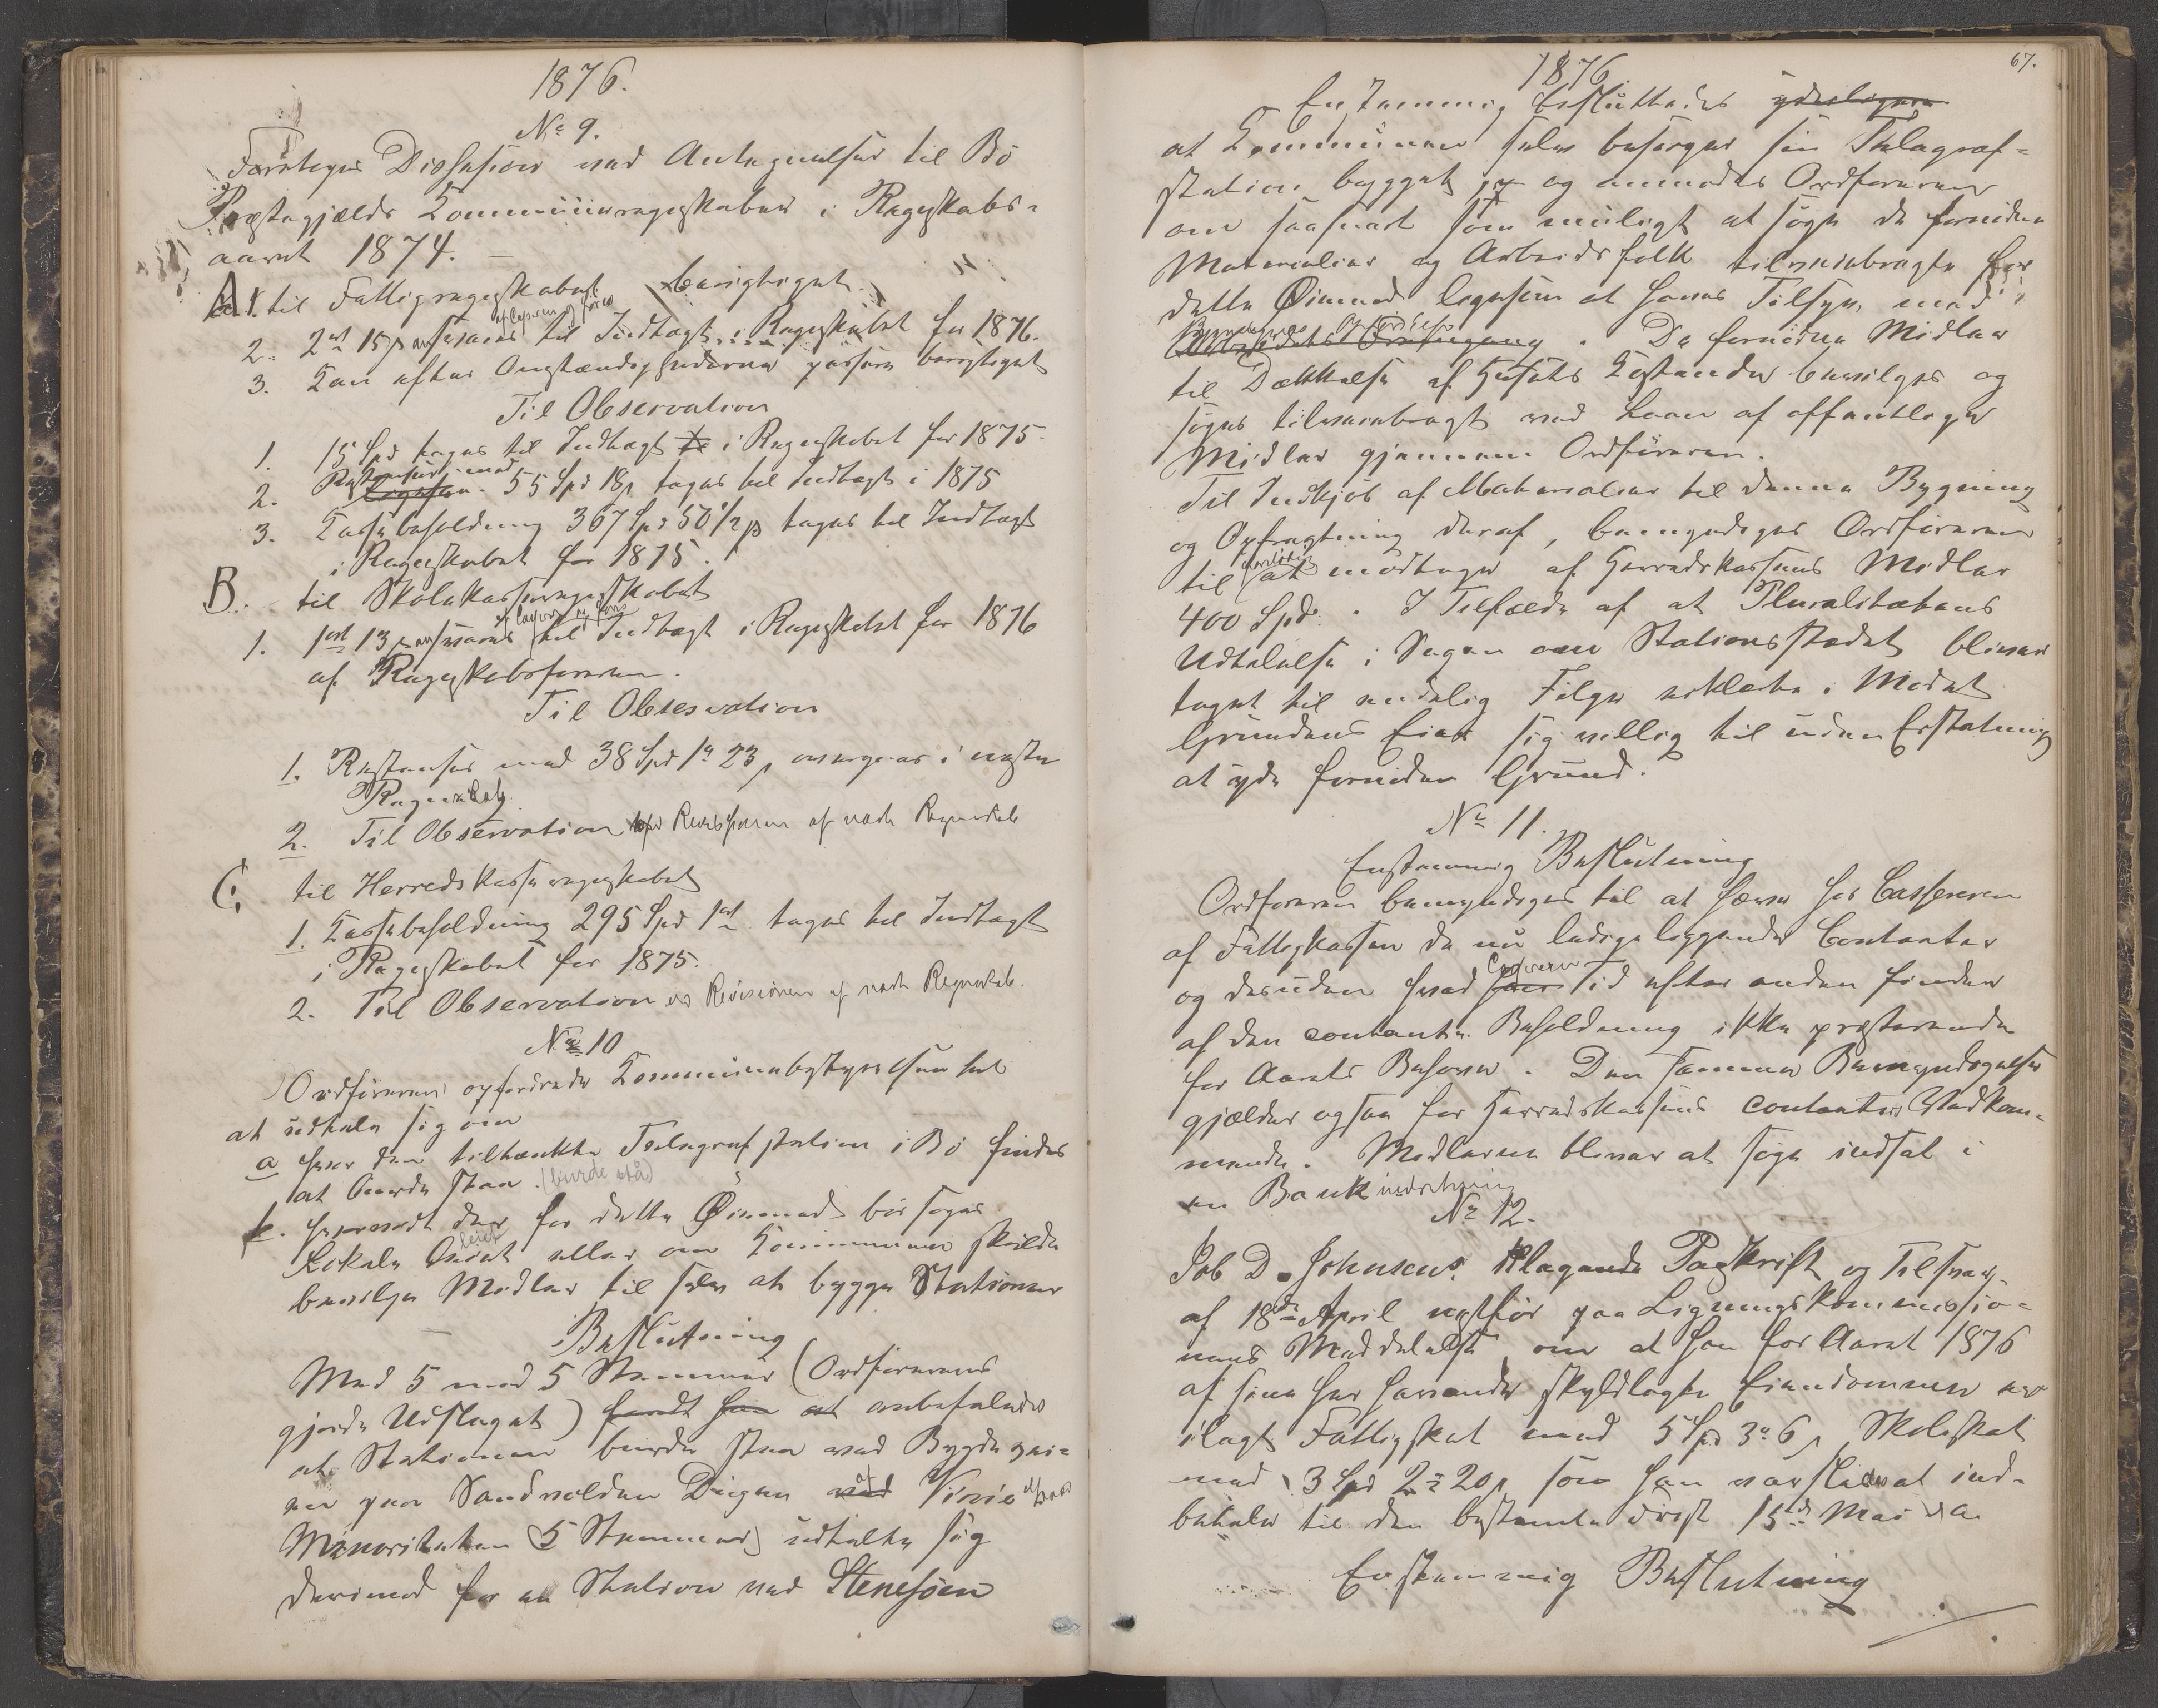 1876.
No 9.
Foretoges Desision ved Antegnelser til Bö
Præstegjælds Kommuneregnskaber i Regnskabs-
aaret 1874.
A 1. til Fattigregnskabet berigtiget.
2. 2 ort 15 s ansvares til Indtægt i Regnskabet for 1876.
af Casseren og föres
3. Kan efter Omstændighederne passere berigtiget
Til Observation
1. 15 Spd tages til Indtægt i Regnskabet for 1875.
2. Restanser med 55 Spd 18 s tages til Indtægt i 1875
3. Kassebeholdning 367 Spd 50 1/2 s tages til Indtægt
i Regnskabet for 1875.
B. til Skolekasseregnskabet
1. 1 ort 13 s ansvares til Indtægt i Regnskabet for 1876
af Regnskabsföreren.
Til Observation
1. Restanser med 38 Spd 1 o 23 s omsørges i næste
Regnskab.
2. Til Observation ved Revisionen af næste Regnskab
C. til Herredskasseregnskabet
1. Kassebeholdning 295 Spd 1 ort tages til Indtægt
i Regnskabet for 1875.
2. Til Observation ved Revisionen af næste Regnskab.
No 10
Ordföreren opfordrede Kommunebestyrelsen til
at udtale sig om
a hvor den tiltænkte Telegrafstation i Bö findes
at burde staa. (burde stå)
b. hvorvidt der for dette Øiemed bör søges
Lokale leiet eller om Kommunen skulde
leiet
bevilge Midler til selv at bygge Stationen
Beslutning
Med 5 mod 5 Stemmer (Ordförerens
gjorde Udslaget) fandt han at anbefaledes
at Stationen burde staa ved Bygdevei-
en paa Sandvolden Dugen ved Vinie
Minoriteten (5 Stemmer) udtalte sig
derimod for en Station ved Stenesöen
67.
1876
Enstemmig besluttedes yderligere
at Kommunen selv besörger sin Telegraf-
station bygget og anmodes Ordföreren
om saasnart som muligt at söge de fornödne
Materialier og Arbeidsfolk tilveiebragte for
dette Øiemed ligesom at have Tilsyn med
Bygningens Opförelse. De fornödne Midler
til Dækkelse af Husets Kostende bevilges og
söges tilveiebragt ved Laan af offentlige
Midler gjennem Ordföreren.
Til Indkjöb af Materialier til denne Bygning
og Opfragtning deraf, bemyndiges Ordföreren
til foreløbig at modtage af Herredskassens Midler
400 Spd. I Tilfælde af at Pluralitetens
Udtalelse i Sagen om Stationsstedet bliver
taget til endelig Fölge erklærte i Mödet
Grundens Eier sig villig til uden Erstatning
at yde fornöden Grund.
No 11.
Enstemmig Beslutning
Ordföreren bemyndiges til at hæve hos Cassereren
af Fattigkassen de nu ledige liggende Contanter
og desuden hvad Casseren Tid efter anden finder
af den contante Beholdning ikke præsterende
for Aarets Behov. Den samme Bemyndigelse
gjælder ogsaa for Herredskassens contanter Vedkom-
mende. Midlerne bliver at söge indsat i
en Bankindretning
No 12.
Job D. Johnsens klagende Paaskrift og Tilsvar
af 18de April nestfør paa Ligningskommissio-
nens Meddelelse om at han for Aaret 1876
af sine her havende skyldlagte Eiendommer er
ilagt Fattigskat med 5 Spd 3 o 6 s, Skoleskat
med 3 Spd 2 o 20 s som han varsledes at ind-
betale til den bestemte Frist 15de Mai d. A.
Enstemmig Beslutning